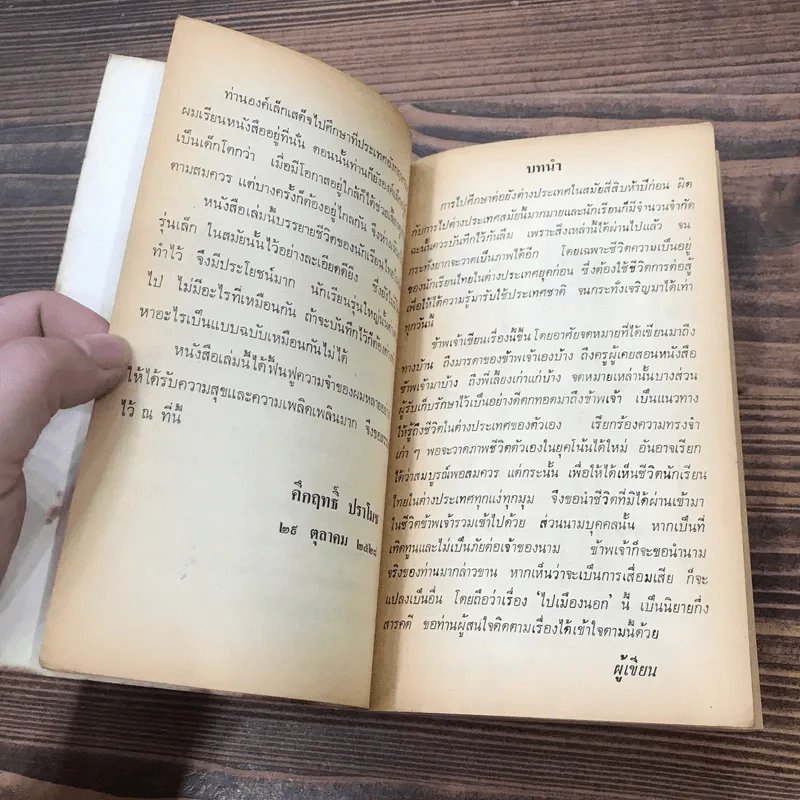 ท่านองค์เล็กเสด็จไปศึกษาที่ประเทศอังกฤษ
ผมเรียนหนังสืออยู่ที่นั่น ตอนนั้นท่านก็ยังองค์เล็ก
เป็นเด็กโตกว่า เมื่อมีโอกาสอยู่ใกล้ก็ได้ช่วย
ตามสมควร แต่บางครั้งก็ต้องอยู่ไกลกัน จึงห่าง
หนังสือเล่มนี้บรรยายชีวิตของนักเรียนไทย
รุ่นเล็ก ในสมัยนั้นไว้อย่างละเอียดดียิ่ง ซึ่งยังไม่มี
ทำไว้ จึงมีประโยชน์มาก นักเรียนรุ่นใหญ่นั้น
ไป ไม่มีอะไรที่เหมือนกัน ถ้าจะบันทึกไว้ก็ต้อง
หาอะไรเป็นแบบฉบับเหมือนกันไม่ได้
หนังสือเล่มนี้ได้ฟื้นฟูความจำของผมหลาย
ให้ได้รับความสุขและความเพลิดเพลินมาก จึงขอ
ไว้ ณ ที่นี้
คึกฤทธิ์ ปราโมช
๒๙ ตุลาคม ๒๕๒๘
บทนำ
การไปศึกษาต่อยังต่างประเทศในสมัยสี่สิบห้าปีก่อน ผิด
กับการไปต่างประเทศสมัยนี้มากมายและนักเรียนก็มีจำนวนจำกัด
ฉะนั้นควรบันทึกไว้กันลืม เพราะสิ่งเหล่านี้ได้ผ่านไปแล้ว จน
กระทั่งยากจะวาดเป็นภาพได้อีก โดยเฉพาะชีวิตความเป็นอยู่
ของนักเรียนไทยในต่างประเทศยุคก่อน ซึ่งต้องใช้ชีวิตการต่อสู้
เพื่อให้ได้ความรู้มารับใช้ประเทศชาติ จนกระทั่งเจริญมาได้เท่า
ทุกวันนี้
ข้าพเจ้าเขียนเรื่องนี้ขึ้น โดยอาศัยจดหมายที่ได้เขียนมาถึง
ทางบ้าน ถึงมารดาของข้าพเจ้าเองบ้าง ถึงครูผู้เคยสอนหนังสือ
ข้าพเจ้ามาบ้าง ถึงพี่เลี้ยงเก่าแก่บ้าง จดหมายเหล่านั้นบางส่วน
ผู้รับเก็บรักษาไว้เป็นอย่างดีตกทอดมาถึงข้าพเจ้า เป็นแนวทาง
ให้รู้ถึงชีวิตในต่างประเทศของตัวเอง เรียกร้องความทรงจำ
เก่า ๆ พอจะวาดภาพชีวิตตัวเองในยุคโน้นได้ใหม่ อันอาจเรียก
ได้ว่าสมบูรณ์พอสมควร แต่กระนั้น เพื่อให้ได้เห็นชีวิตนักเรียน
ไทยในต่างประเทศทุกแง่ทุกมุม จึงขอนำชีวิตที่มิได้ผ่านเข้ามา
ในชีวิตข้าพเจ้ารวมเข้าไปด้วย ส่วนนามบุคคลนั้น หากเป็นที่
เทิดทูนและไม่เป็นภัยต่อเจ้าของนาม ข้าพเจ้าก็จะขอนำนาม
จริงของท่านมากล่าวขาน หากเห็นว่าจะเป็นการเสื่อมเสีย ก็จะ
แปลงเป็นอื่น โดยถือว่าเรื่อง ‘ไปเมืองนอก’ นี้ เป็นนิยายกึ่ง
สารคดี ขอท่านผู้สนใจติดตามเรื่องได้เข้าใจตามนี้ด้วย
ผู้เขียน